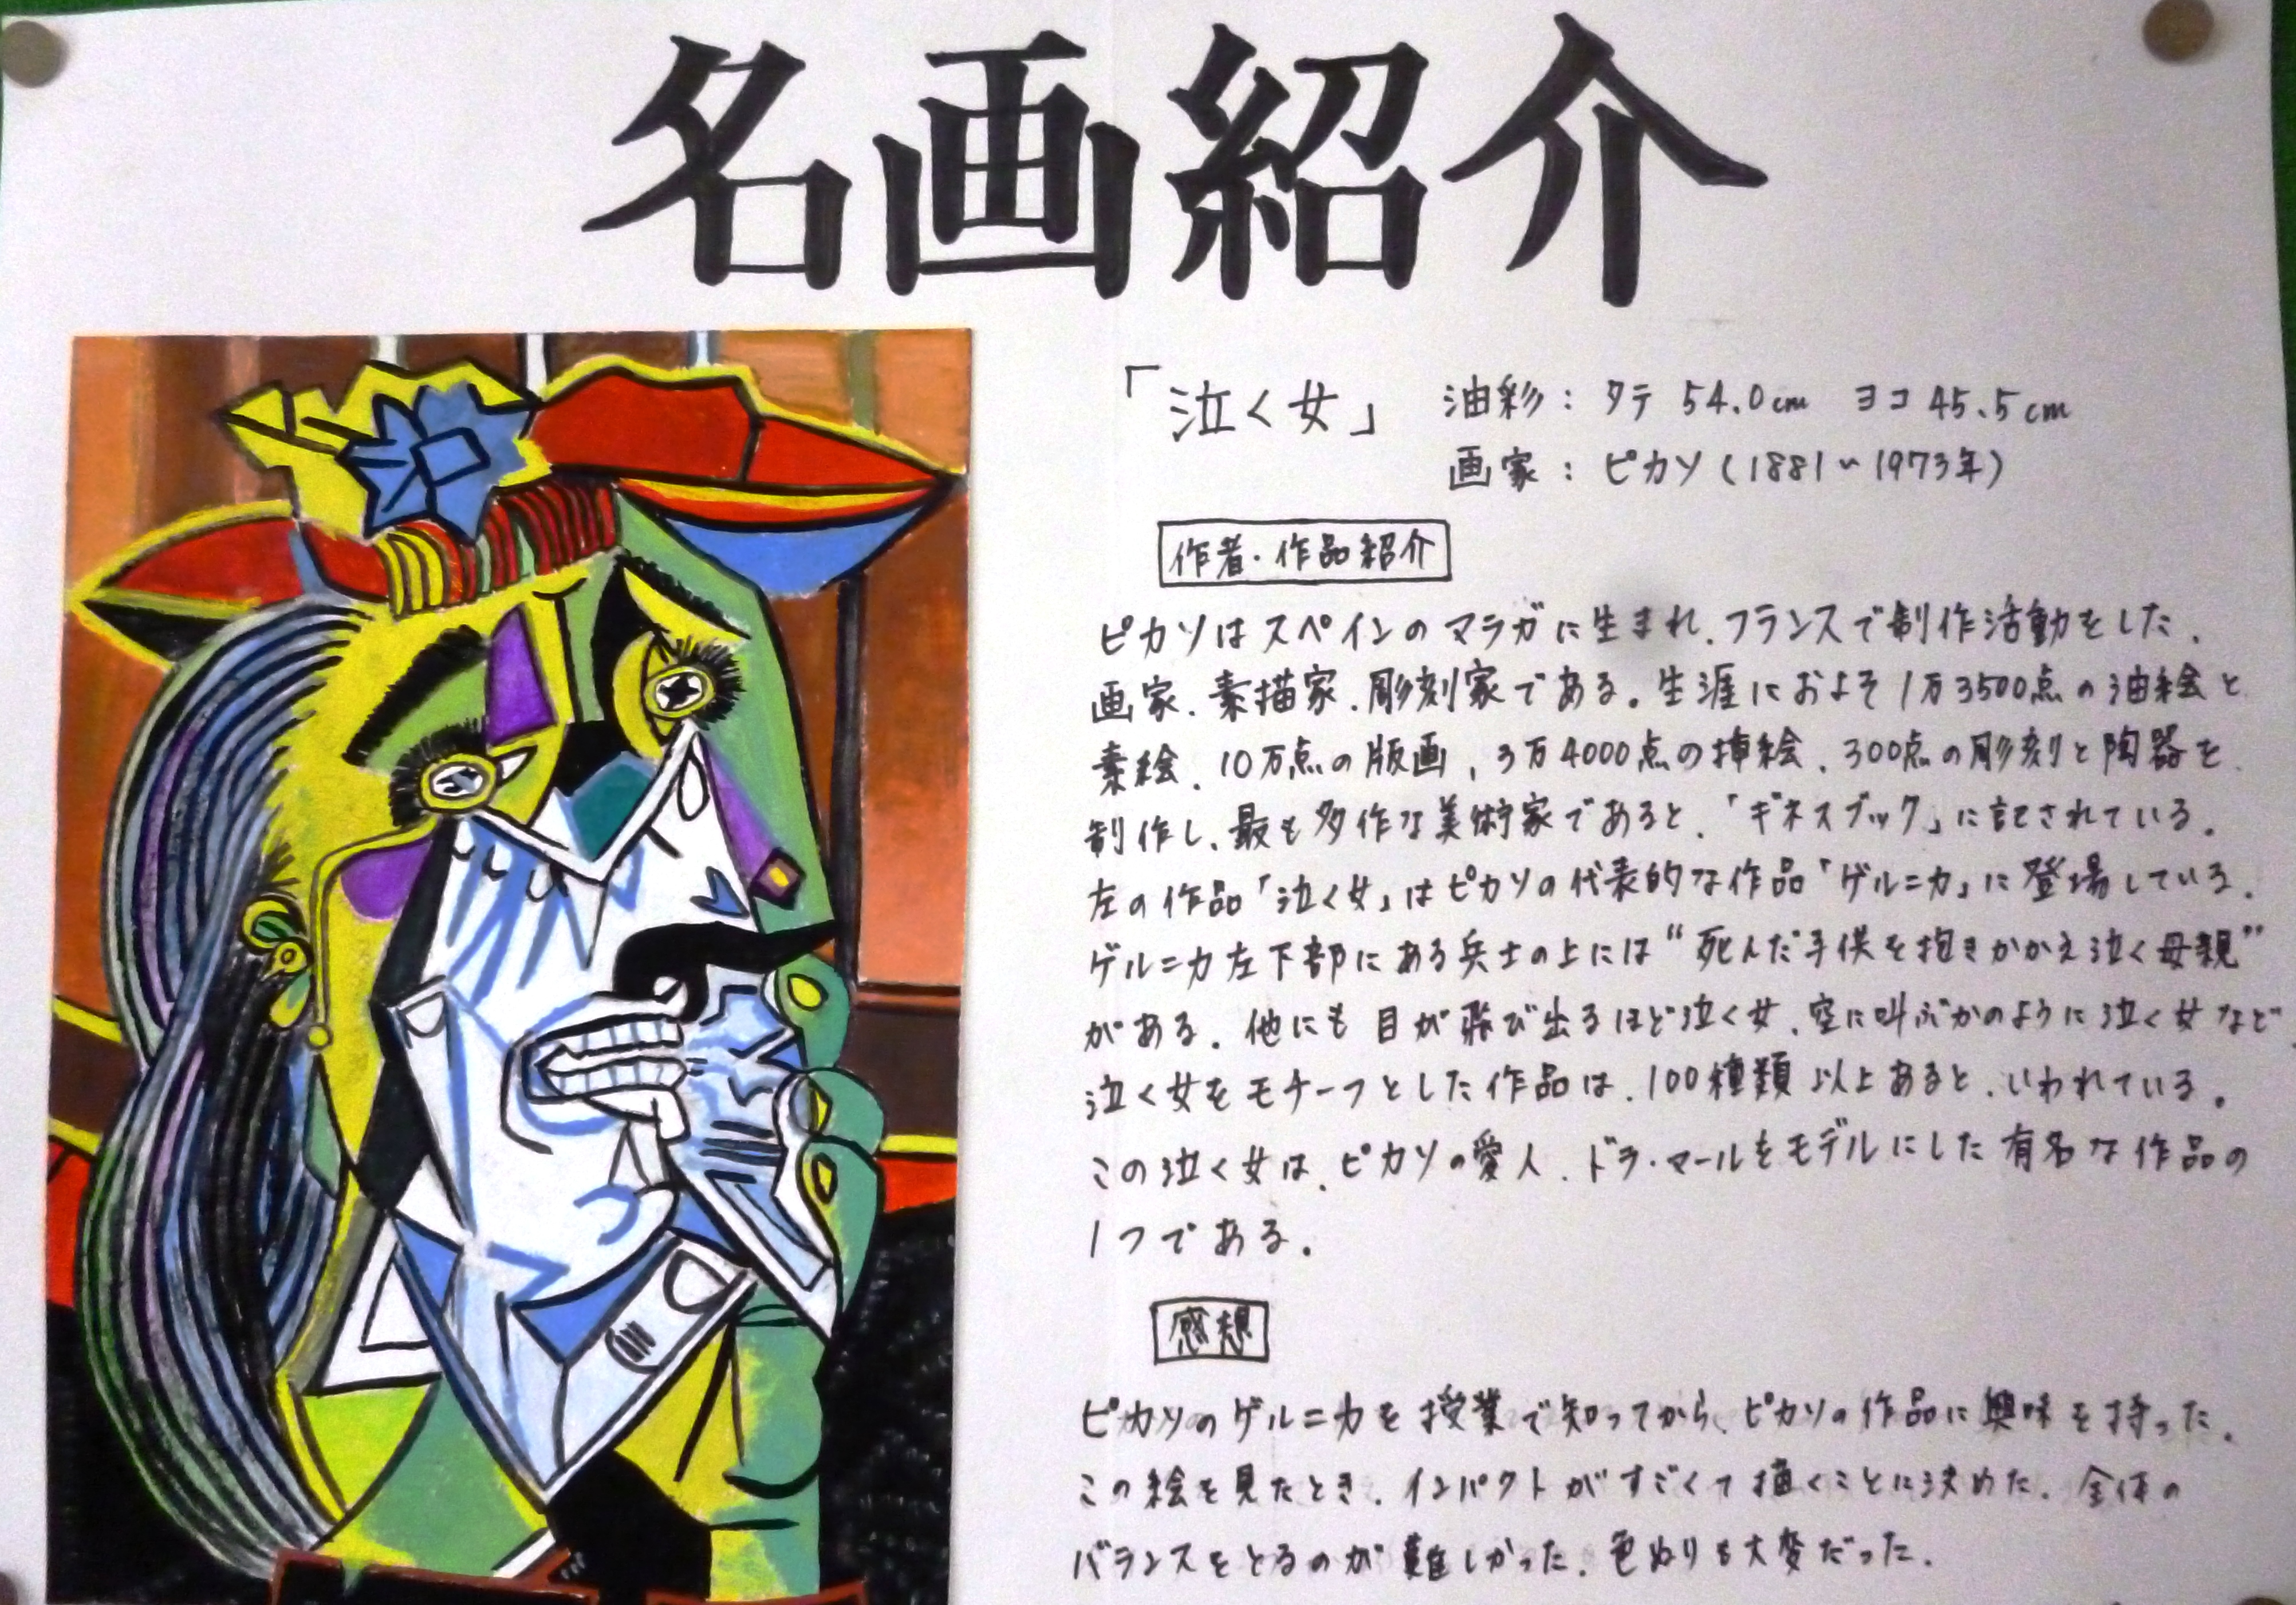 名画紹介
「泣く女」 油彩：タテ 54.0cm ヨコ 45.5cm
画家：ピカソ（1881〜1973年）
作者・作品紹介
ピカソはスペインのマラガに生まれ、フランスで制作活動をした、
画家、素描家、彫刻家である。生涯におよそ1万3500点の油絵と
素絵、10万点の版画、3万4000点の挿絵、300点の彫刻と陶器を
制作し、最も多作な美術家であると、「ギネスブック」に記されている。
左の作品「泣く女」はピカソの代表的な作品「ゲルニカ」に登場している。
ゲルニカ左下部にある兵士の上には“死んだ子供を抱きかかえ泣く母親”
がある。他にも目が飛び出るほど泣く女、空に叫ぶかのように泣く女など
泣く女をモチーフとした作品は、100種類以上あると、いわれている。
この泣く女は、ピカソの愛人、ドラ・マールをモデルにした有名な作品の
1つである。
感想
ピカソのゲルニカを授業で知ってから、ピカソの作品に興味を持った。
この絵を見たとき、インパクトがすごくて描くことに決めた。全体の
バランスをとるのが難しかった。色ぬりも大変だった。